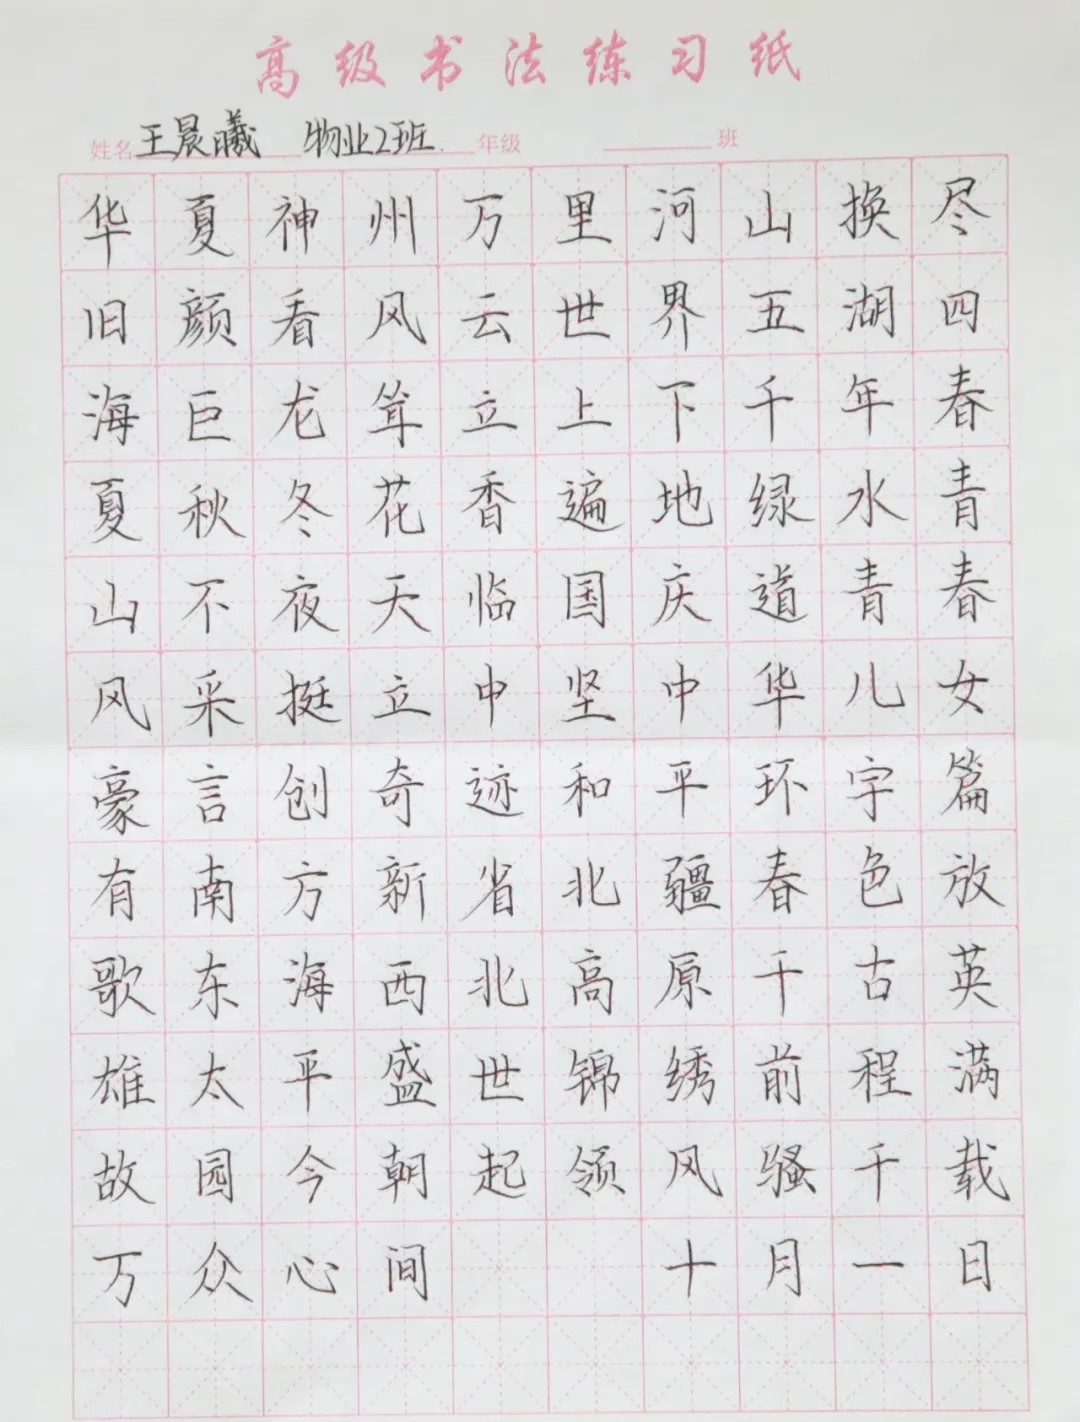 高级书法练习纸
姓名 王晨曦 物业2班 年级 班
华夏神州万里河山换尽
旧颜看风云世界五湖四
海巨龙耸立上下千年春
夏秋冬花香遍地绿水青
山不夜天临国庆道青春
风采挺立中坚中华儿女
豪言创奇迹和平环宇篇
有南方新省北疆春色放
歌东海西北高原千古英
雄太平盛世锦绣前程满
故园今朝起领风骚千载
万众心间 十月一日